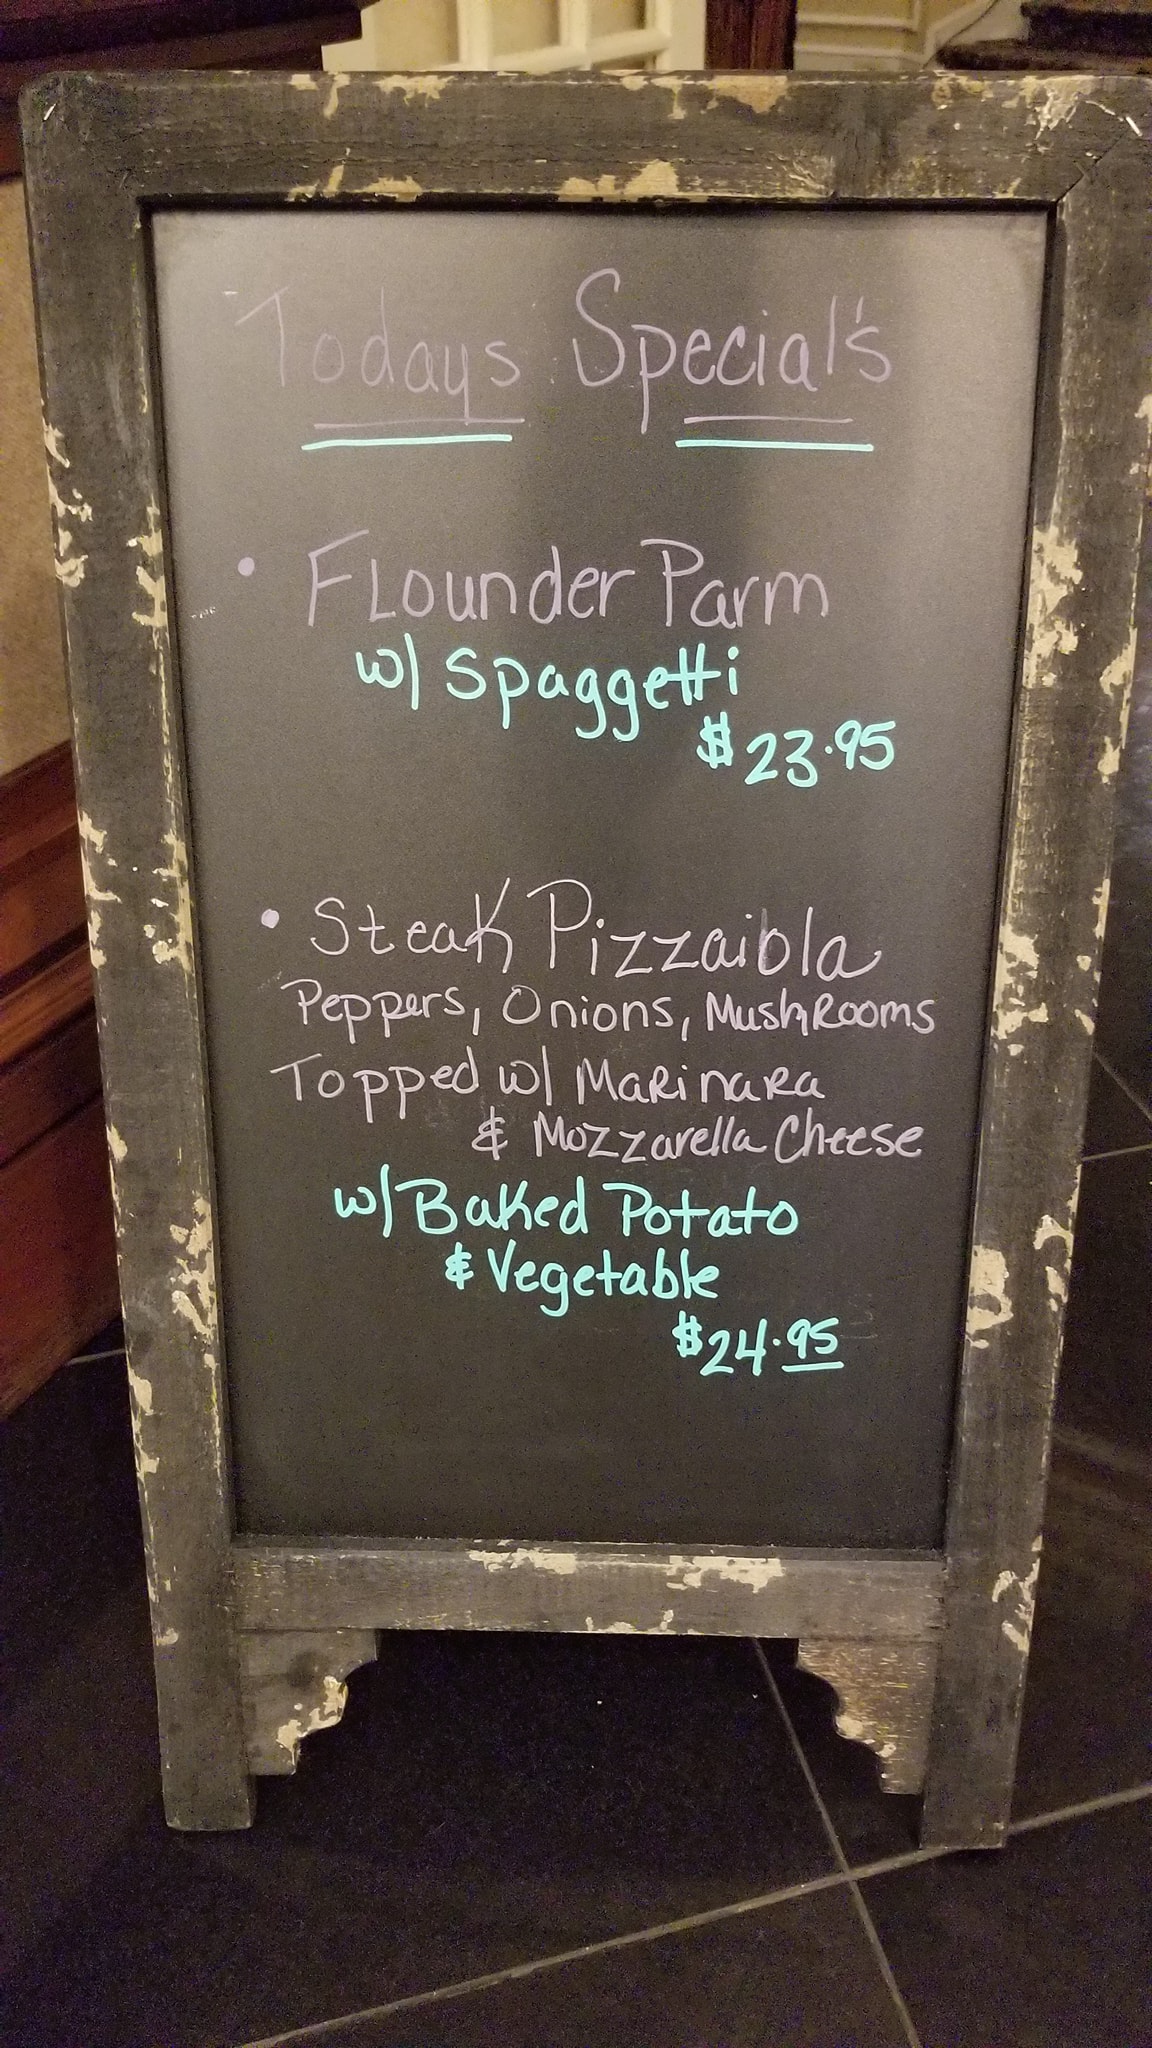 Todays Special's
• FLounder Parm
w/ Spaggetti
$23.95
• Steak Pizzaiola
Peppers, Onions, MushRooms
Topped w/ MaRinaRa
& Mozzarella Cheese
w/ Baked Potato
& Vegetable
$24.95